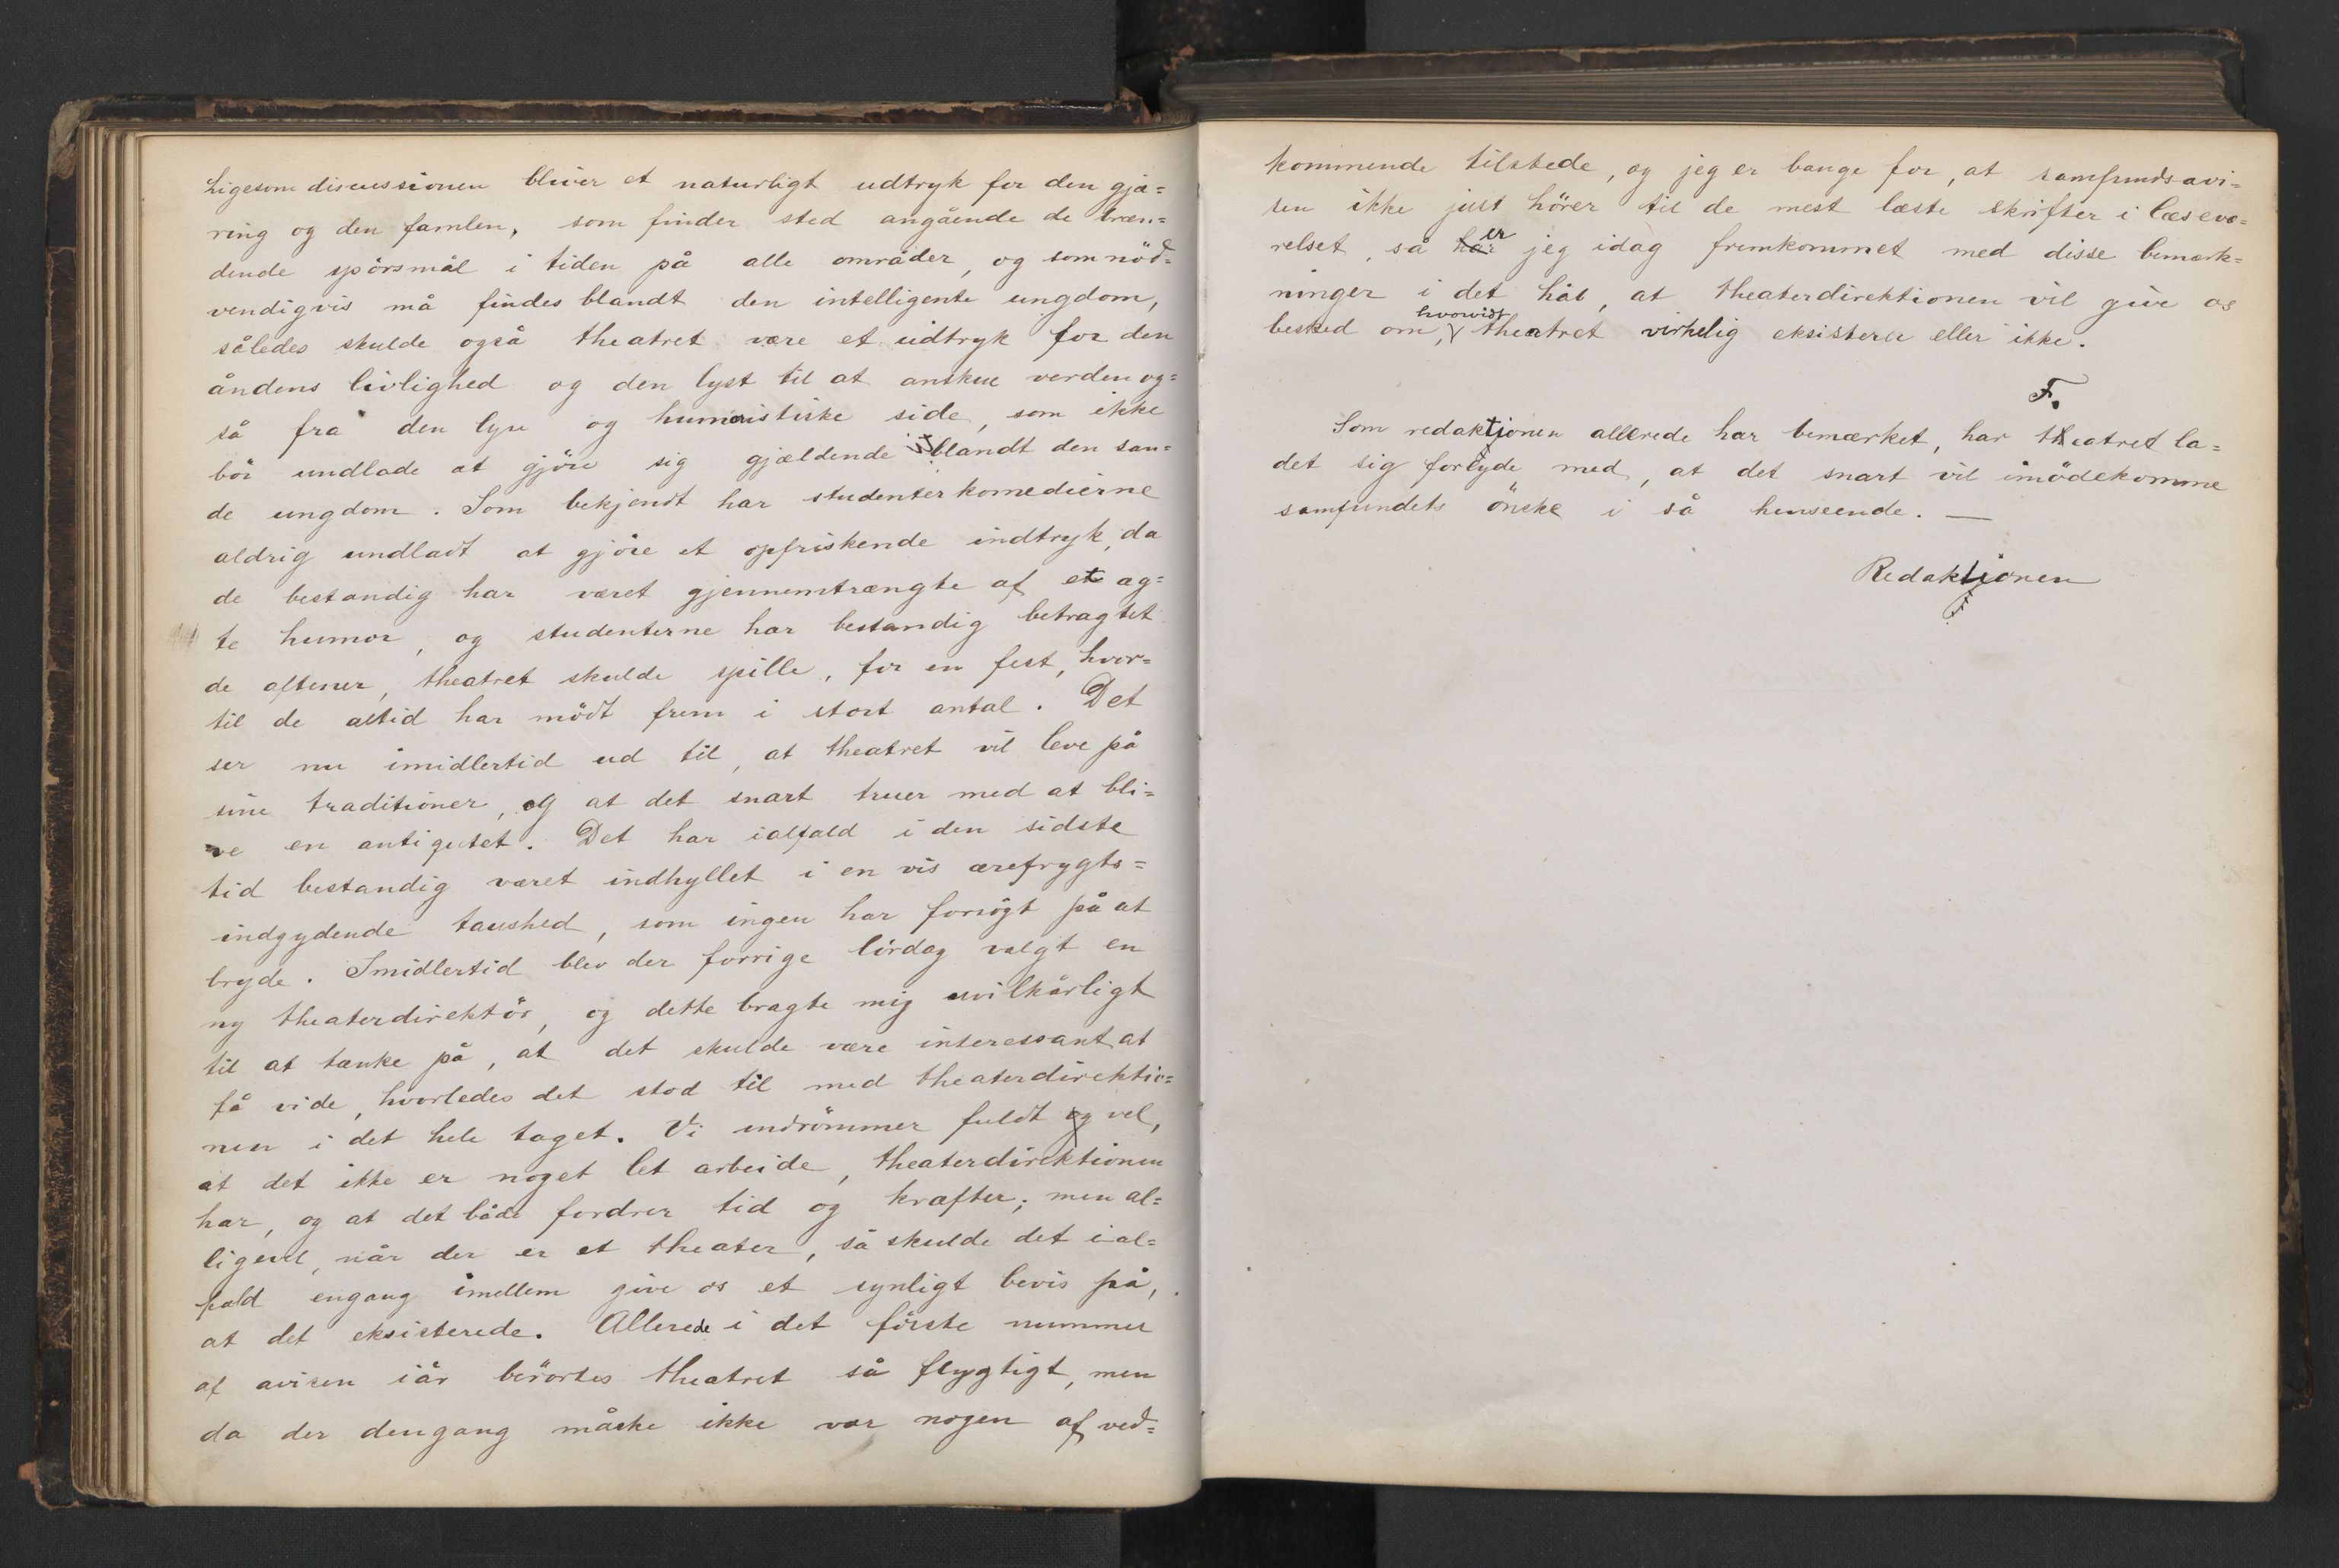 Ligesom discussionen bliver et naturligt udtryk for den gjæ=
ring og den famlen, som finder sted angående de bræn=
dende spörsmål i tiden på alle områder, og som nöd=
vendigvis må findes blandt den intelligente ungdom,
således skulde også theatret være et udtryk for den
åndens livlighed og den lyst til at anskue verden og=
så fra den lyse og humoristiske side, som ikke
bör undlade at gjöre sig gjældende iblandt den san=
de ungdom. Som bekjendt har studenterkomedierne
aldrig undladt at gjöre et opfriskende indtryk, da
de bestandig har været gjennemtrængte af et æg=
te humor, og studenterne har bestandig betragtet
de aftener, theatret skulde spille, for en fest, hvor=
til de altid har mödt frem i stort antal. Det
ser nu imidlertid ud til, at theatret vil leve på
sine traditioner, og at det snart truer med at bli=
ve en antiqutet. Det har ialfald i den sidste
tid bestandig været indhyllet i en vis ærefrygts=
indgydende taushed, som ingen har forsögt på at
bryde. Imidlertid blev der forrige lördag valgt en
ny theaterdirektör, og dette bragte mig uvilkårligt
til at tænke på, at det skulde være interessant at
få vide, hvorledes det stod til med theaterdirektio=
nen i det hele taget. Vi indrömmer fuldt og vel,
at det ikke er noget let arbeide, theaterdirektionen
har, og at det både fordrer tid og kræfter; men al=
ligevel, når der er et theater, så skulde det ial=
fald engang imellem give os et synligt bevis på,
at det eksisterede. Allerede i det förste nummer
af avisen iår berörtes theatret så flygtigt, men
da der dengang måske ikke var nogen af ved=
kommende tilstede, og jeg er bange for, at samfundsavi=
sen ikke just hörer til de mest læste skrifter i læsevæ=
relset, så har er jeg idag fremkommet med disse bemærk=
ninger i det håb, at theaterdirektionen vil give os
besked om, hvorvidt theatret virkelig eksisterer eller ikke.
F.
Som redaktjonen allerede har bemærket, har theatret la=
det sig forlyde med, at det snart vil imödekomme
samfundets önske i så henseende. —
Redaktjonen